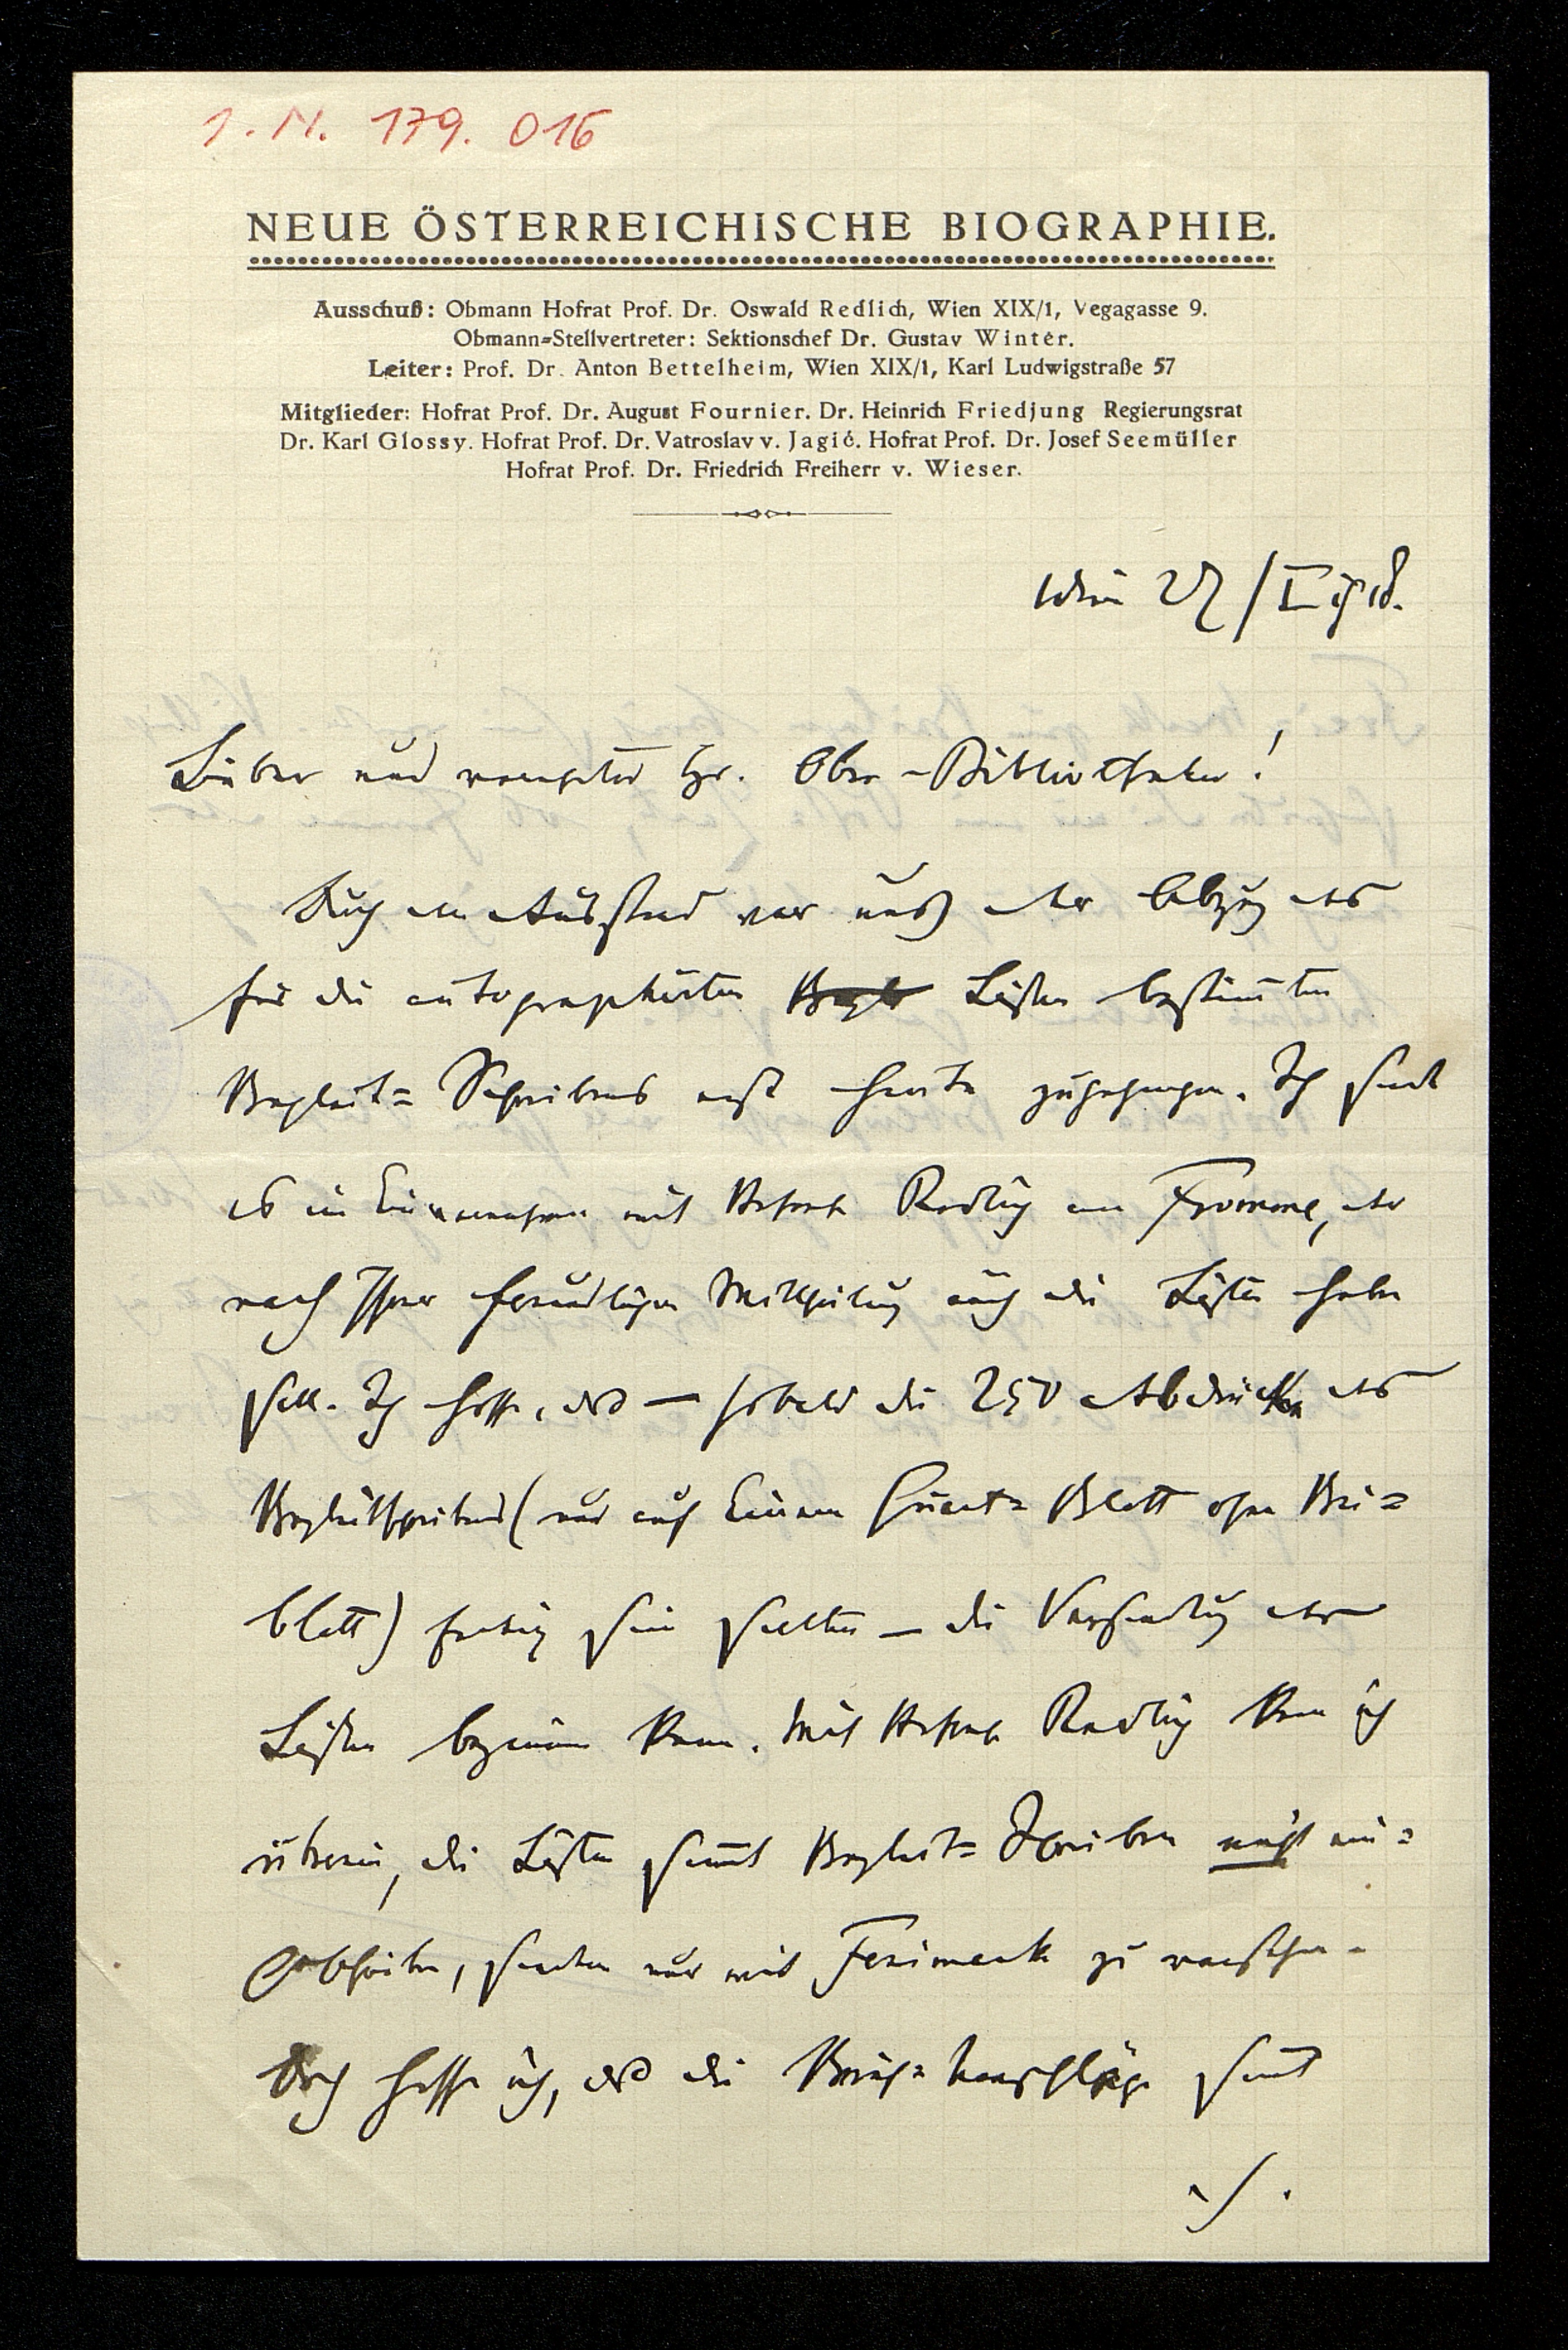 I. N. 179.016
NEUE ÖSTERREICHISCHE BIOGRAPHIE.
Ausschuß: Obmann Hofrat Prof. Dr. Oswald Redlich, Wien XIX/1, Vegagasse 9.
Obmann=Stellvertreter: Sektionschef Dr. Gustav Winter.
Leiter: Prof. Dr. Anton Bettelheim, Wien XIX/1, Karl Ludwigstraße 57
Mitglieder: Hofrat Prof. Dr. August Fournier. Dr. Heinrich Friedjung Regierungsrat
Dr. Karl Glossy. Hofrat Prof. Dr. Vatroslav v. Jagić. Hofrat Prof. Dr. Josef Seemüller
Hofrat Prof. Dr. Friedrich Freiherr v. Wieser.
Wien 27/I 1918.
Lieber und verehrter Hr. Ober-Bibliothekar!
Durch den Ausstand war uns der Abzug des
für die autographirten Listen bestimmten
Begleit= Schreibens erst heute zugegangen. Ich sende
es im Einvernehmen mit Hofrath Redlich an Fromme, der
nach Ihrer freundlichen Mittheilung auch die Listen haben
soll. Ich hoffe, daß — sobald die 250 Abdrücke des
Begleitschreibens (nur auf Einem Quart= Blatt ohne Bei=
blatt) fertig sein sollten — die Versendung der
Listen beginnen kann. Mit Hofrath Redlich kam ich
überein, die Listen sammt Begleit= Schreiben nicht ein=
sondern nur mit Freimarke zu versehen.
Doch hoffe ich, daß die Brief= Umschläge sammt
./.